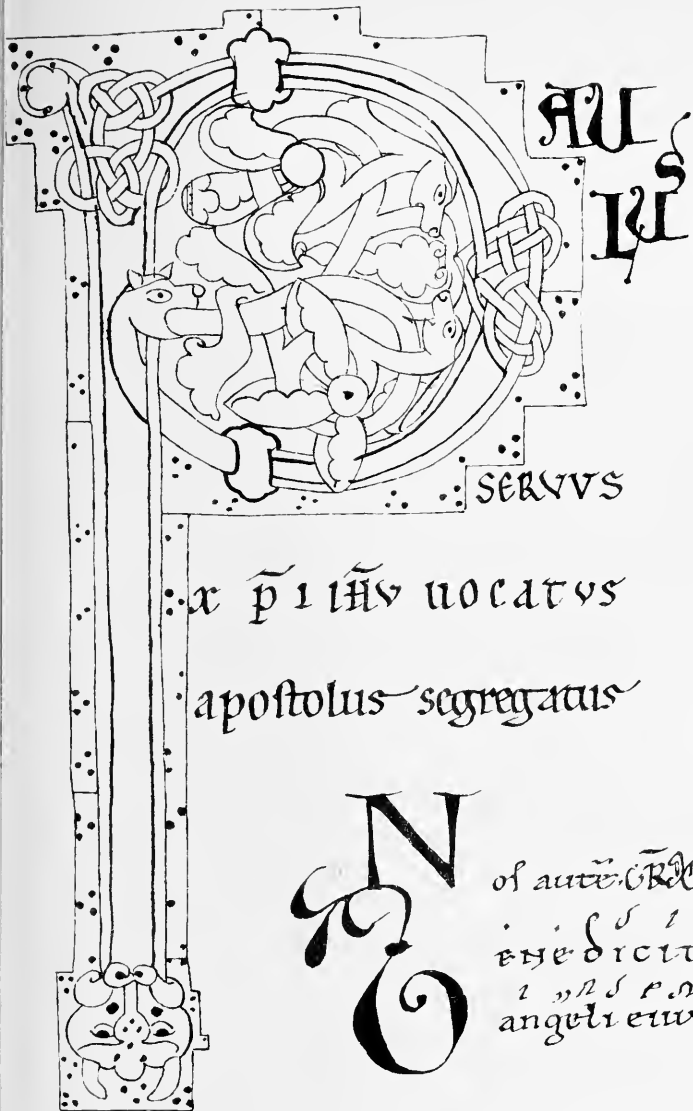 PAU
LUS
SERVVS
x p̄ i ih̄v uocatvs
apoſtolus segregatus
Noſ autē
BENEDICIT
angeli eiuſ